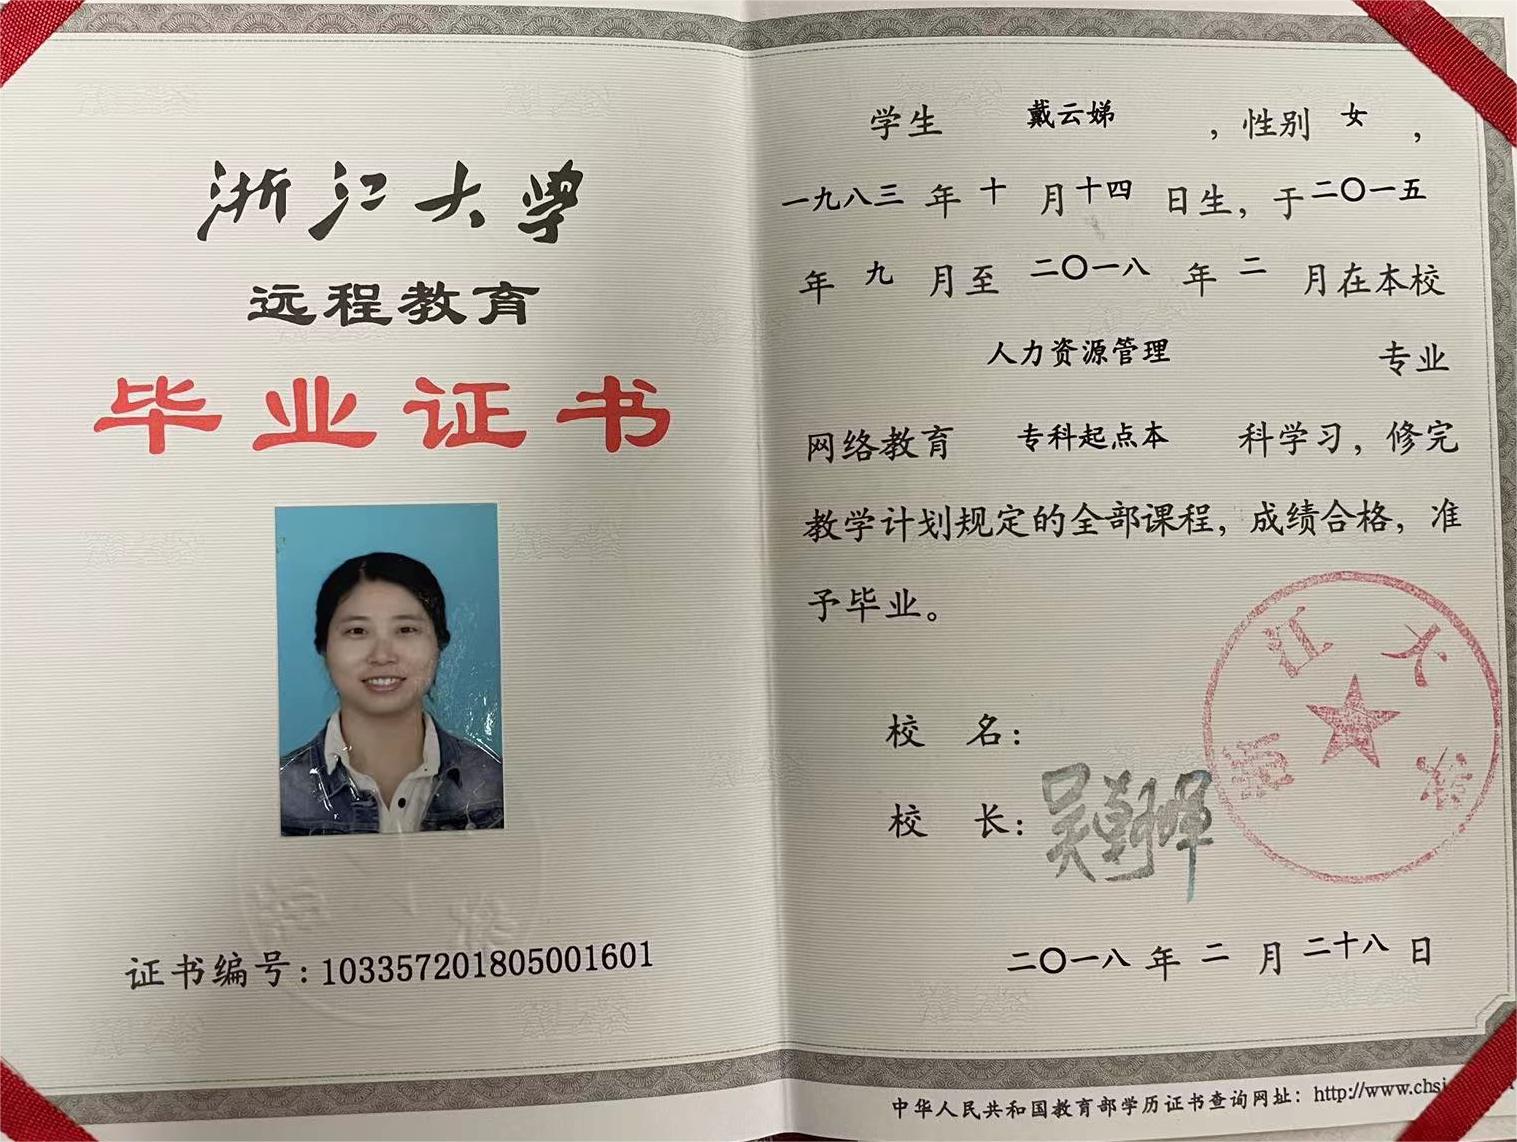 浙江大学
远程教育
毕业证书
证书编号：103357201805001601
学生 戴云娣 ，性别 女 ，
一九八三 年 十 月 十四 日生，于二〇一五
年 九 月至 二〇一八 年 二 月在本校
人力资源管理 专业
网络教育 专科起点本 科学习，修完
教学计划规定的全部课程，成绩合格，准
予毕业。
校 名：
浙江大学
校 长：吴朝晖
二〇一八 年 二 月 二十八 日
中华人民共和国教育部学历证书查询网址：http://www.chsi